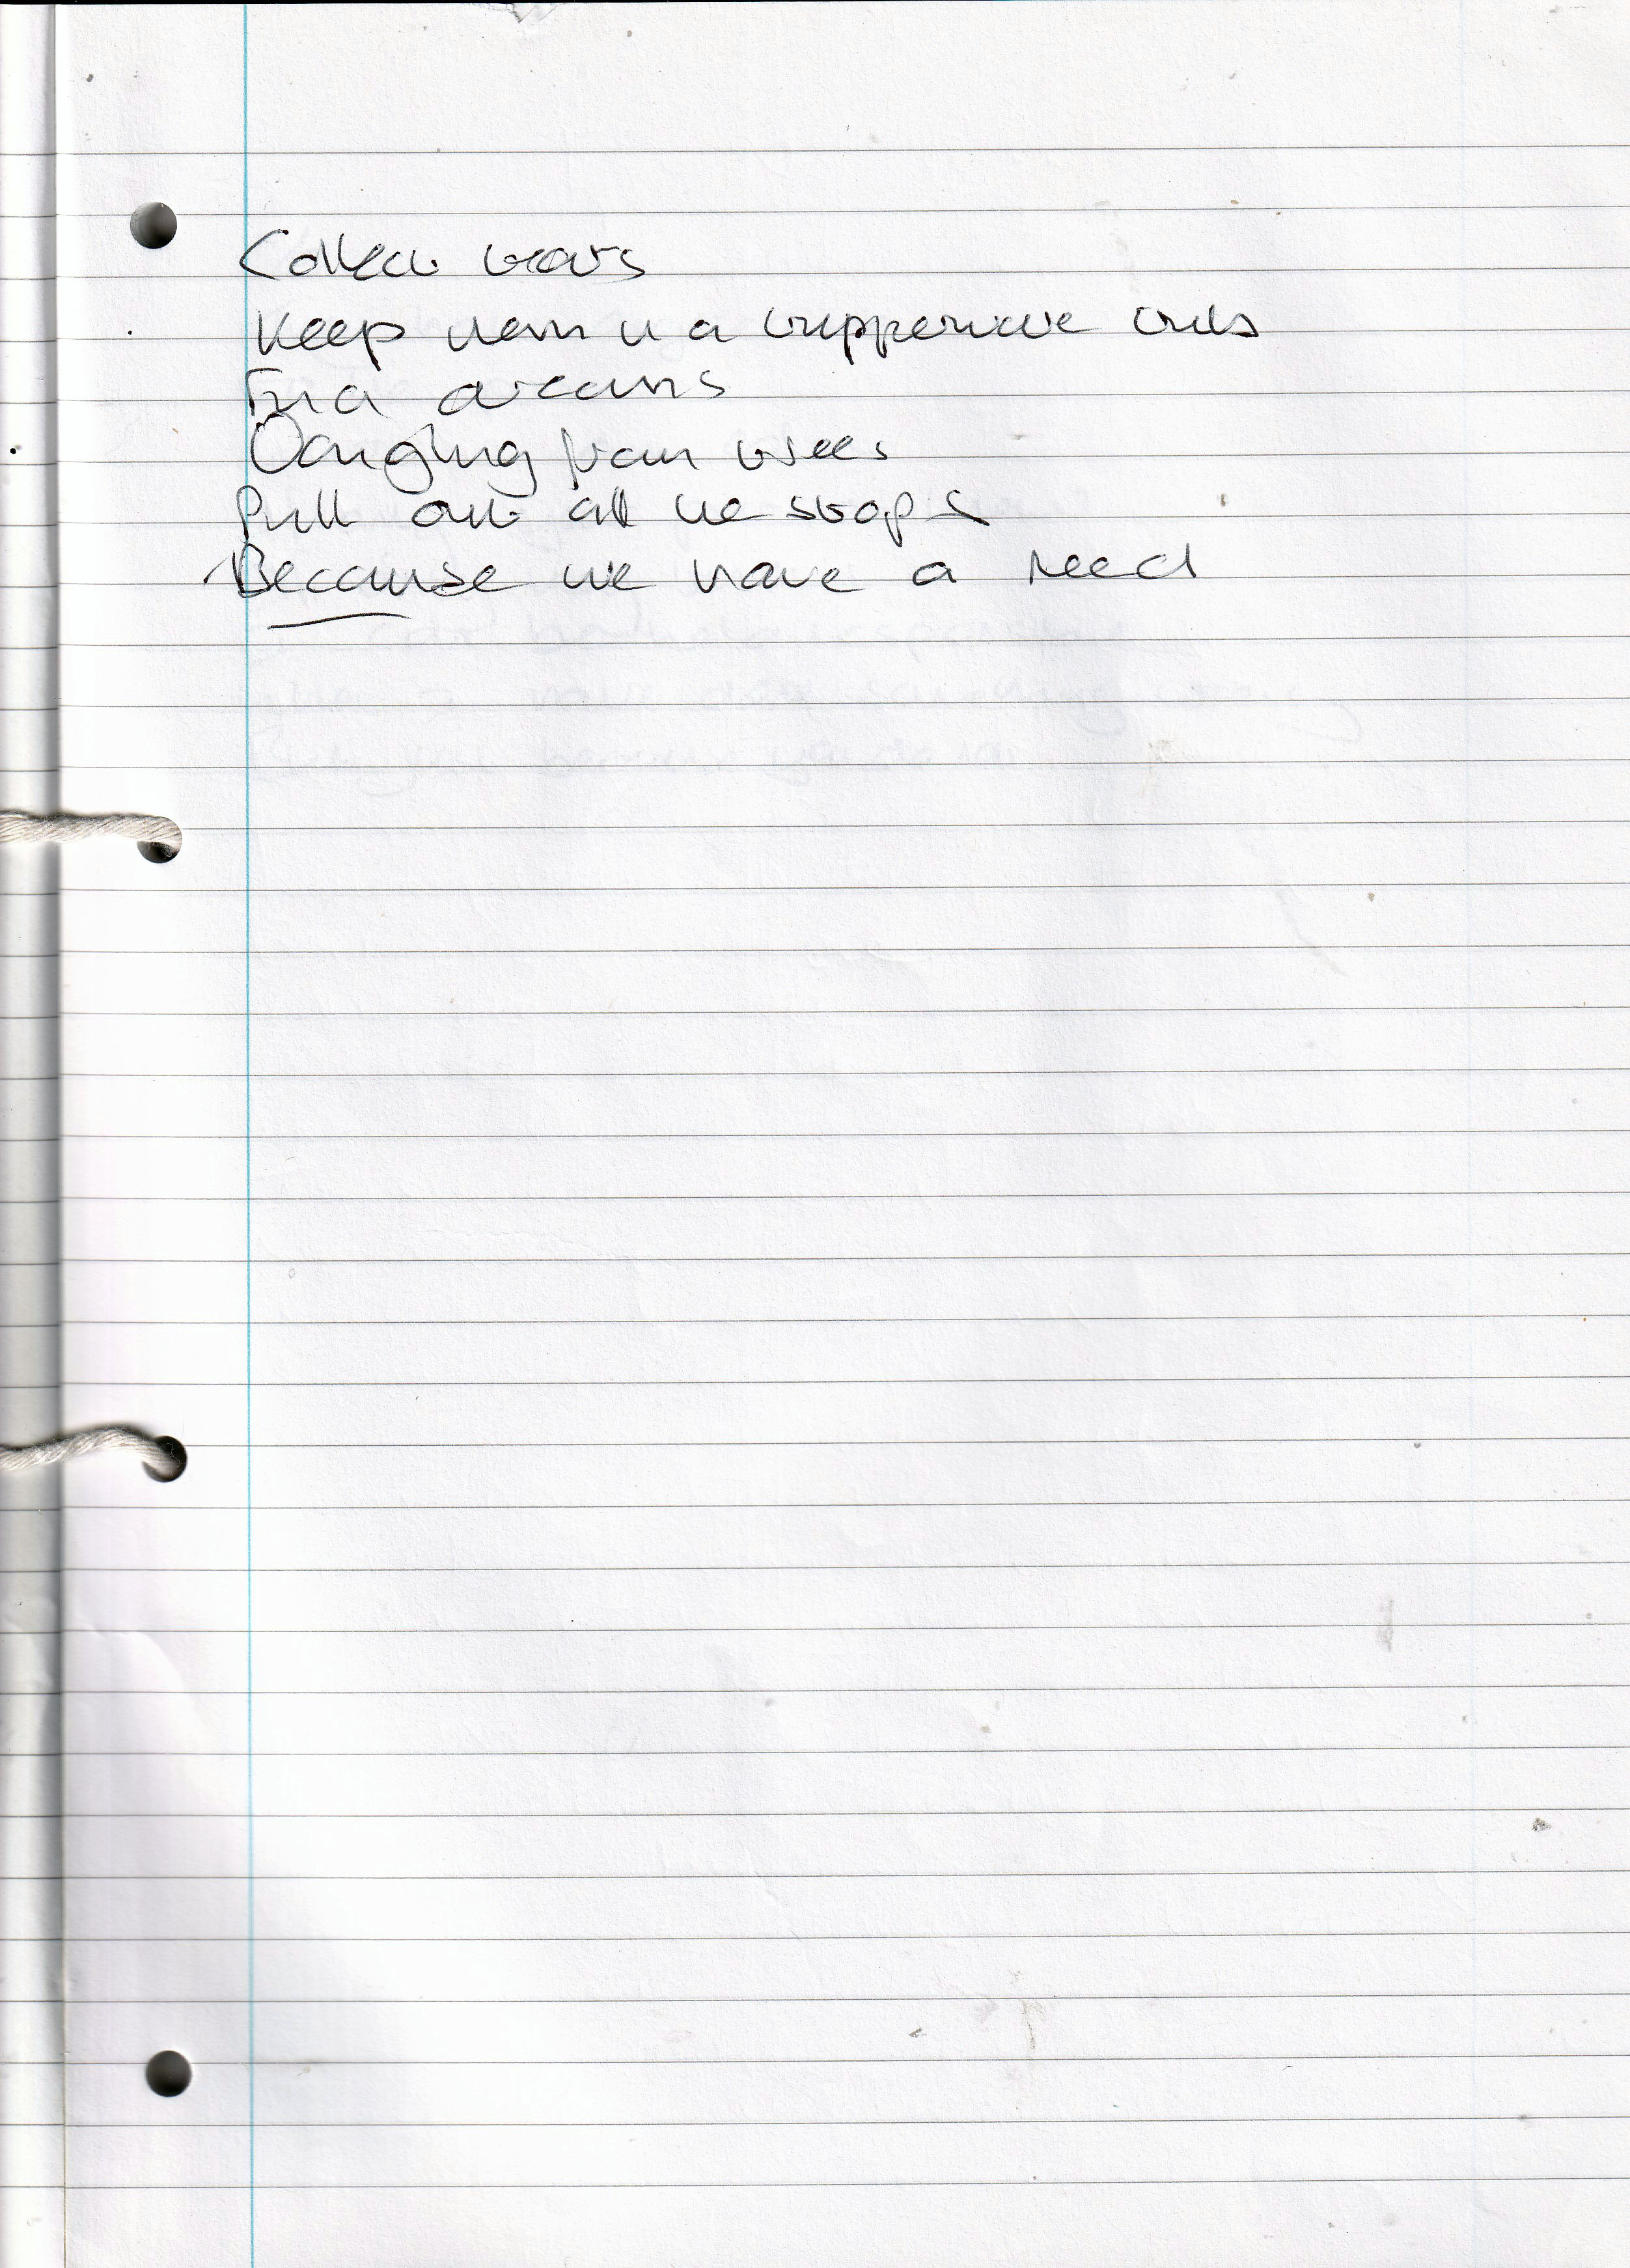 Collect tears
Keep them in a tupperware
Find dreams
Dangling from trees
Pull out all the stops
Because we have a need